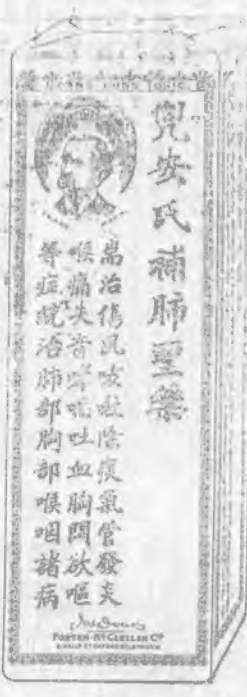 兜安氏補肺聖藥
耑治傷風咳嗽除痰氣管發炎
喉痛失音哮吼吐血胸悶欲嘔
等症統治肺部胸部喉咽諸病
FOSTER-McCLELLAN Co